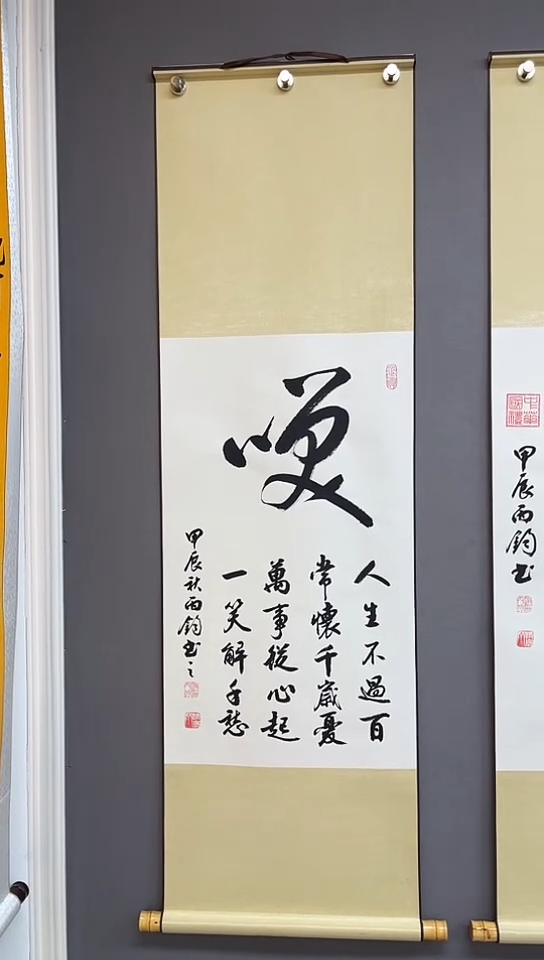 人生不過百
常懷千歲憂
萬事從心起
一笑解千愁
甲辰秋雨鈞書之
中華國禮
甲辰雨鈞書